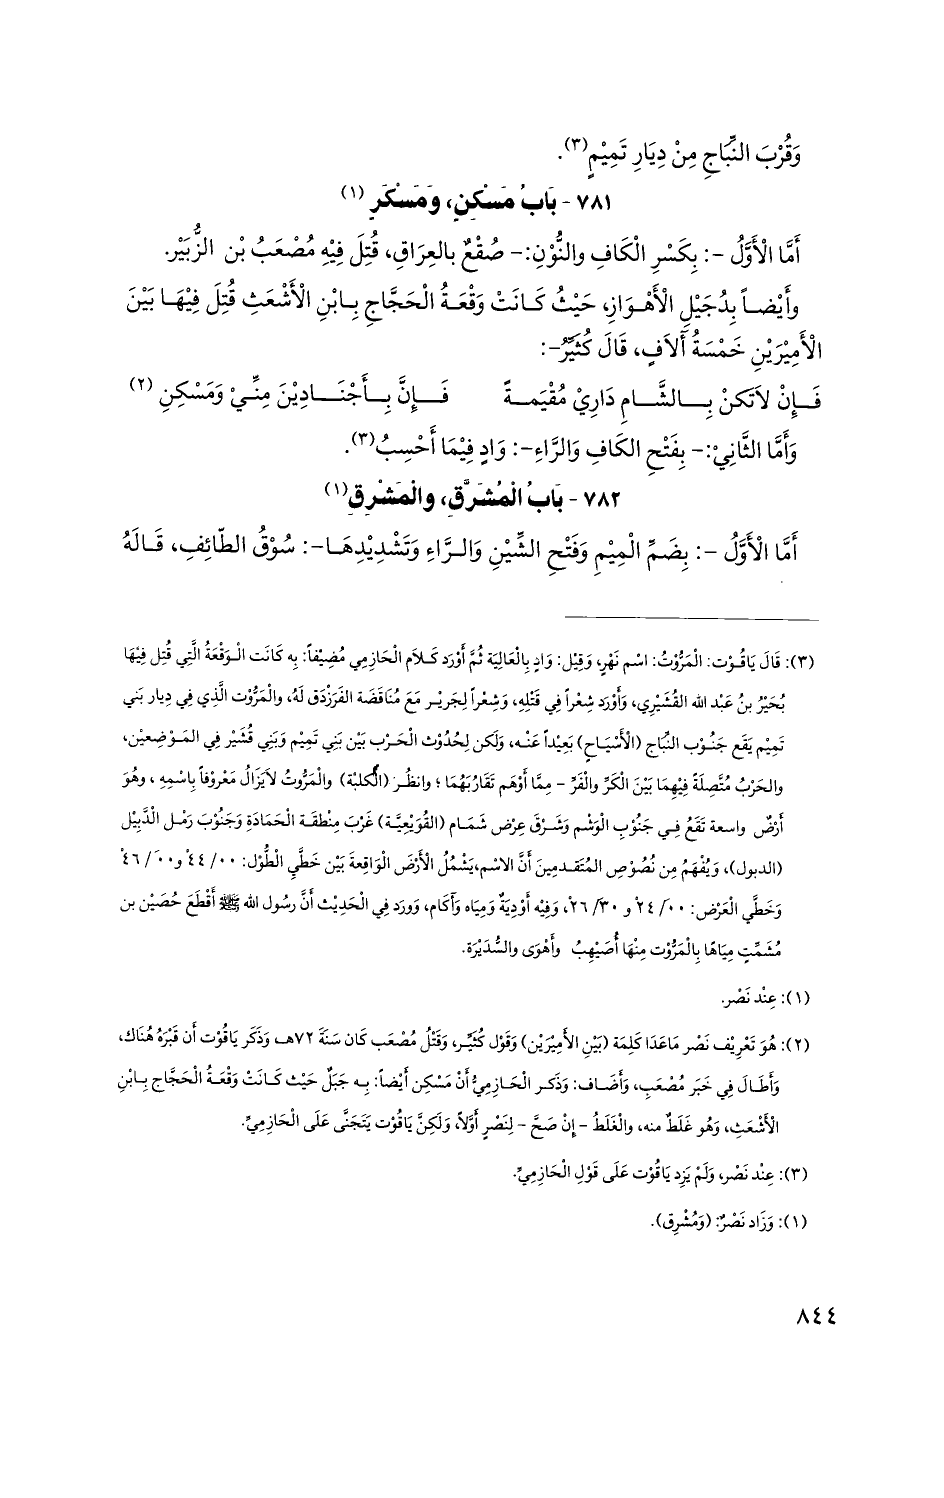 وَقُرْبَ النِّبَاجِ مِنْ دِيَارِ تَمِيْمٍ(٣).
٧٨١ - بَابُ مَسْكِنٍ، وَمَسْكَرٍ (١)
أَمَّا الْأَوَّلُ -: بِكَسْرِ الْكَافِ والنُّوْنِ:- صُقْعٌ بالعِرَاقِ، قُتِلَ فِيْهِ مُصْعَبُ بْن الزُّبَيْر.
وأَيْضاً بِدُجَيْلِ الْأَهْوَازِ، حَيْثُ كَانَتْ وَقْعَةُ الْحَجَّاجِ بِابْنِ الْأَشْعَثِ قُتِلَ فِيْهَا بَيْنَ
الْأَمِيْرَيْنِ خَمْسَةُ آلَافٍ، قَالَ كُثَيِّرٌ-:
فَإِنْ لاَتَكنْ بِالشَّامِ دَارِيْ مُقْيَمَةً فَإِنَّ بِأَجْنَادِيْنَ مِنِّيْ وَمَسْكِنِ (٢)
وَأَمَّا الثَّانِيْ:- بِفَتْحِ الكَافِ وَالرَّاءِ-: وَادٍ فِيْمَا أَحْسِبُ(٣).
٧٨٢ - بَابُ الْمُشَرَّقِ، والْمَشْرِقِ(١)
أَمَّا الْأَوَّلُ -: بِضَمِّ الْمِيْمِ وَفَتْحِ الشِّيْنِ وَالرَّاءِ وَتَشْدِيْدِهَا-: سُوْقُ الطَّائِفِ، قَالَهُ
(٣): قَالَ يَاقُوْت: الْمَرُّوْتُ: اسْم نَهْرٍ، وَقِيْل: وَادٍ بِالْعَالِيَة ثُمَّ أَوْرَد كَلاَم الْحَازِمِي مُضِيْفاً: بِهِ كَانَت الْوَقْعَةُ الَّتِي قُتِل فِيْهَا
بُحَيْرُ بنُ عَبْد الله القُشَيْرِي، وَأَوْرَد شِعْراً فِي قَتْلِهِ، وَشِعْراً لِجَرِيْر مَعَ مُنَاقَضَة الفَرَزْدَق لَهُ، والْمَرُّوْت الَّذِي فِي دِيَار بَنِي
تَمِيْم يَقَع جَنُوْب النِّبَاج (الْأَسْيَاحِ) بَعِيْداً عَنْه، وَلَكن لِحُدُوْث الْحَرْب بَيْن بَنِي تَمِيْم وَبَنِي قُشَيْر فِي الْمَوْضِعين،
والحَرْبُ مُتَّصِلَةً فِيْهِمَا بَيْنَ الْكَرِّ والْفَرِّ - مِمَّا أَوْهَم تَقَارُبَهُمَا ؛ وانظُر (الْكُلْبَة) والْمَرُّوتُ لاَيَزَالُ مَعْرُوفاً بِاسْمِهِ ، وهُوَ
أَرْضٌ واسعة تَقَعُ فِي جَنُوْبِ الْوَشْم وَشَرْقَ عِرْض شَمَام (القُوَيْعِيَّة) غَرْبَ مِنْطَقَة الْحَمَادَة وَجَنُوْبَ رَمْل الدَّبِيْل
(الدبول)، وَيُفْهَمُ مِن نُصُوْصِ الْمُتَقَدمِينَ أَنَّ الاسْم،يَشْمُلُ الْأَرْضَ الْوَاقِعةَ بَيْن خَطَّيِ الْطُّوْل: ٠٠/ ٤٤° و٠٠/ ٤٦°
وَخَطَّي الْعَرْض: ٠٠/ ٢٤° و ٣٠/ ٢٦°، وَفِيْه أَوْدِيَةٌ وَمِيَاه وَآكَام، وَوَرَد فِي الْحَدِيْث أَنَّ رسُول الله ﷺ أَقْطَعَ حُصَيْن بن
مُشَمِّتٍ مِيَاهًا بِالْمَرُّوْت مِنْهَا أُصَيْهِبُ وأَهْوَى والسُّدَيْرَة.
(١): عِنْد نَصْر.
(٢): هُوَ تَعْرِيْف نَصْر مَاعَدَا كَلِمَة (بَيْنِ الأَمِيْرَيْن) وَقَوْل كُثَيِّر، وَقَتْلُ مُصْعَب كَان سَنَةَ ٧٢هـ وَذَكَر يَاقُوْت أَن قَبْرَهُ هُنَاك،
وَأَطَالَ فِي خَبَر مُصْعَبٍ، وَأَضَاف: وَذَكَر الْحَازِمِيُّ أَنْ مَسْكِن أَيْضاً: بِهِ جَبَلٌ حَيْث كَانَتْ وَقْعَةُ الْحَجَّاج بِابْنِ
الْأَشْعَثِ، وَهُو غَلَطٌ منه، والْغَلَطُ - إِنْ صَحَّ - لِنَصْرٍ أَوَّلاً، وَلَكِنَّ يَاقُوْت يَتَجَنَّى عَلَى الْحَازِمِيِّ.
(٣): عِنْد نَصْر، وَلَمْ يَزِد يَاقُوْت عَلَى قَوْلِ الْحَازِمِيِّ.
(١): وَزَاد نَصْرٌ: (وَمُشْرِق).
٨٤٤